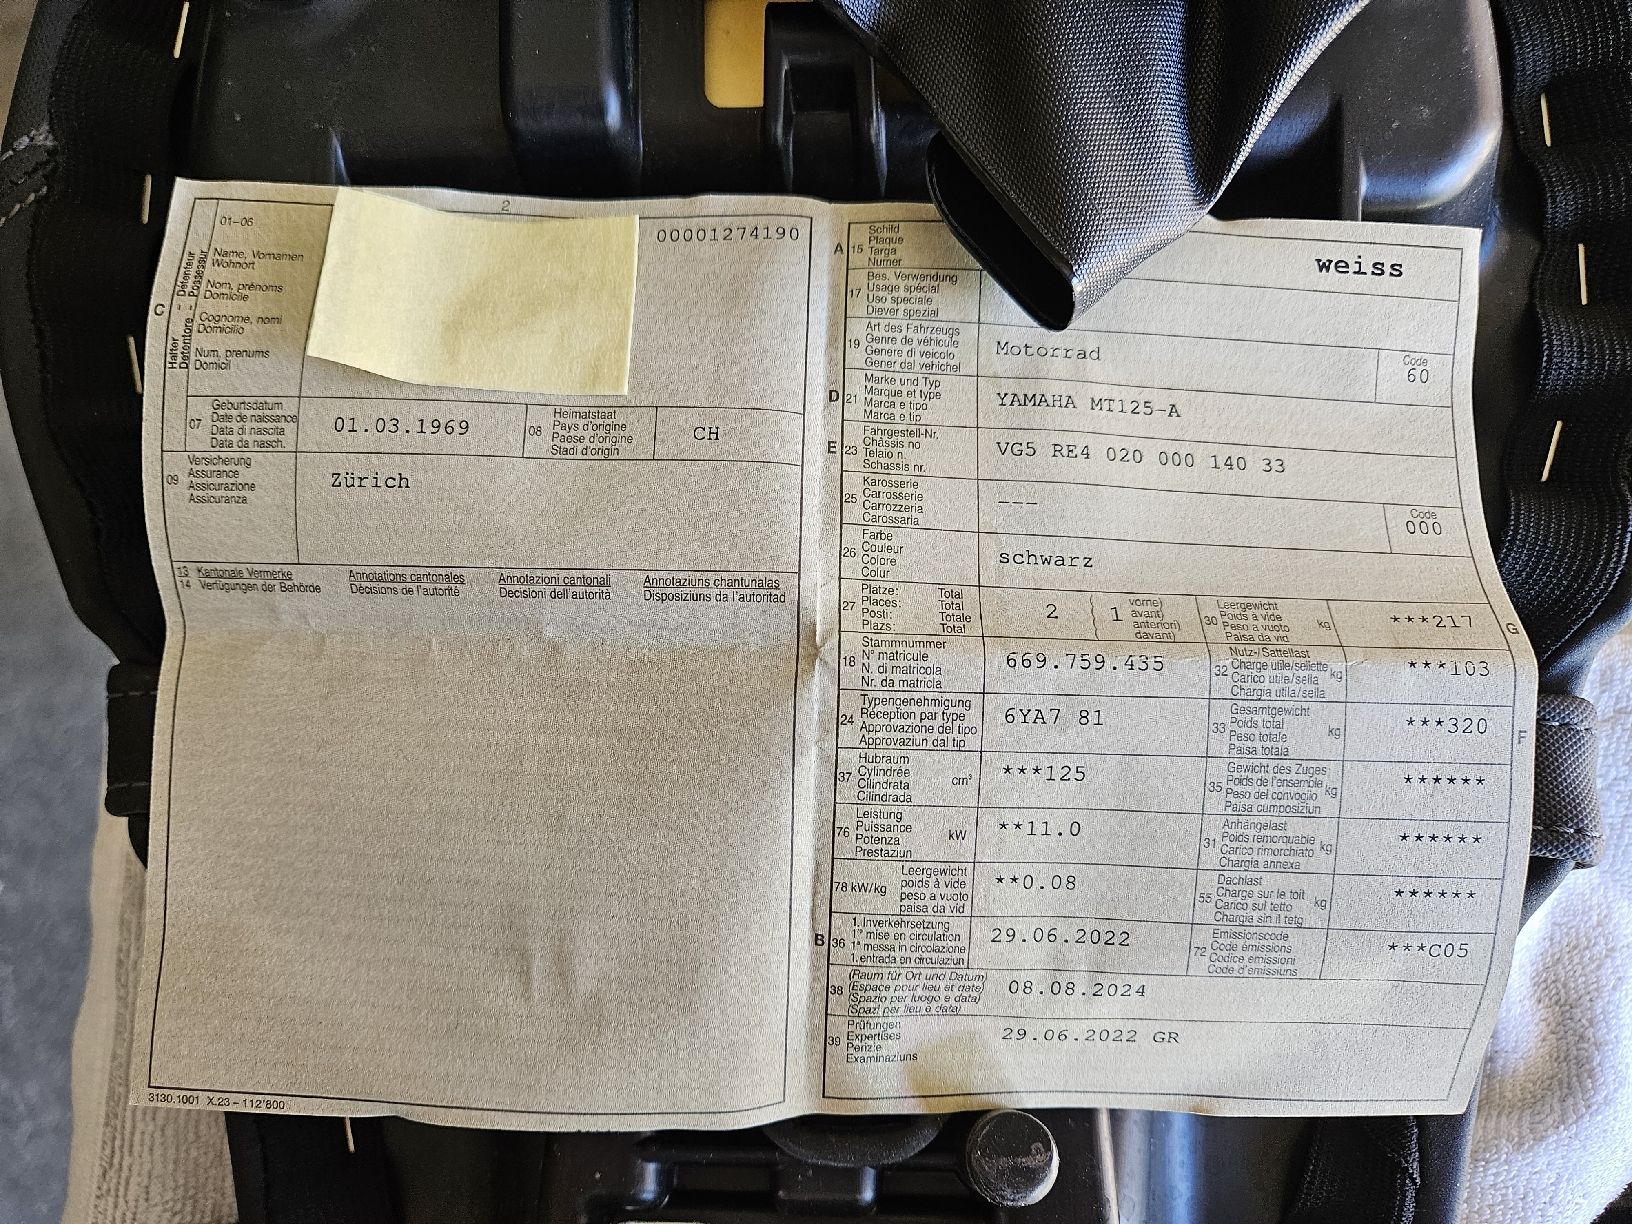 2
01-06
00001274190
C
Halter - Détenteur
Detentore - Possessur
Name, Vornamen
Wohnort
Nom, prénoms
Domicile
Cognome, nomi
Domicilio
Num, prenums
Domicil
07
Geburtsdatum
Date de naissance
Data di nascita
Data da nasch.
01.03.1969
08
Heimatstaat
Pays d'origine
Paese d'origine
Stadi d'origin
CH
09
Versicherung
Assurance
Assicurazione
Assicuranza
Zürich
13 Kantonale Vermerke Annotations cantonales Annotazioni cantonali Annotaziuns chantunalas
14 Verfügungen der Behörde Décisions de l'autorité Decisioni dell'autorità Disposiziuns da l'autoritad
3130.1001 X.23 – 112'800
A
15
Schild
Plaque
Targa
Numer
weiss
17
Bes. Verwendung
Usage spécial
Uso speciale
Diever spezial
19
Art des Fahrzeugs
Genre de véhicule
Genere di veicolo
Gener dal vehichel
Motorrad
Code
60
D
21
Marke und Typ
Marque et type
Marca e tipo
Marca e tip
YAMAHA MT125-A
E
23
Fahrgestell-Nr.
Châssis no
Telaio n.
Schassis nr.
VG5 RE4 020 000 140 33
25
Karosserie
Carrosserie
Carrozzeria
Carossaria
---
Code
000
26
Farbe
Couleur
Colore
Colur
schwarz
27
Plätze: Total
Places: Total
Posti: Totale
Plazs: Total
2
1
vorne)
avant)
anteriori)
davant)
30
Leergewicht
Poids à vide
Peso a vuoto
Paisa da vid
kg
***217
G
18
Stammnummer
N° matricule
N. di matricola
Nr. da matricla
669.759.435
32
Nutz-/Sattellast
Charge utile/sellette
Carico utile/sella
Chargia utila/sella
kg
***103
24
Typengenehmigung
Réception par type
Approvazione del tipo
Approvaziun dal tip
6YA7 81
33
Gesamtgewicht
Poids total
Peso totale
Paisa totala
kg
***320
F
37
Hubraum
Cylindrée
Cilindrata
Cilindrada
cm³
***125
35
Gewicht des Zuges
Poids de l'ensemble
Peso del convoglio
Paisa cumposiziun
kg
******
76
Leistung
Puissance
Potenza
Prestaziun
kW
**11.0
31
Anhängelast
Poids remorquable
Carico rimorchiato
Chargia annexa
kg
******
78 kW/kg
Leergewicht
poids à vide
peso a vuoto
paisa da vid
**0.08
55
Dachlast
Charge sur le toit
Carico sul tetto
Chargia sin il tetg
kg
******
B
36
1. Inverkehrsetzung
1re mise en circulation
1a messa in circolazione
1. entrada en circulaziun
29.06.2022
72
Emissionscode
Code émissions
Codice emissioni
Code d'emissiuns
***C05
38
(Raum für Ort und Datum)
(Espace pour lieu et date)
(Spazio per luogo e data)
(Spazi per lieu e data)
08.08.2024
39
Prüfungen
Expertises
Perizie
Examinaziuns
29.06.2022 GR